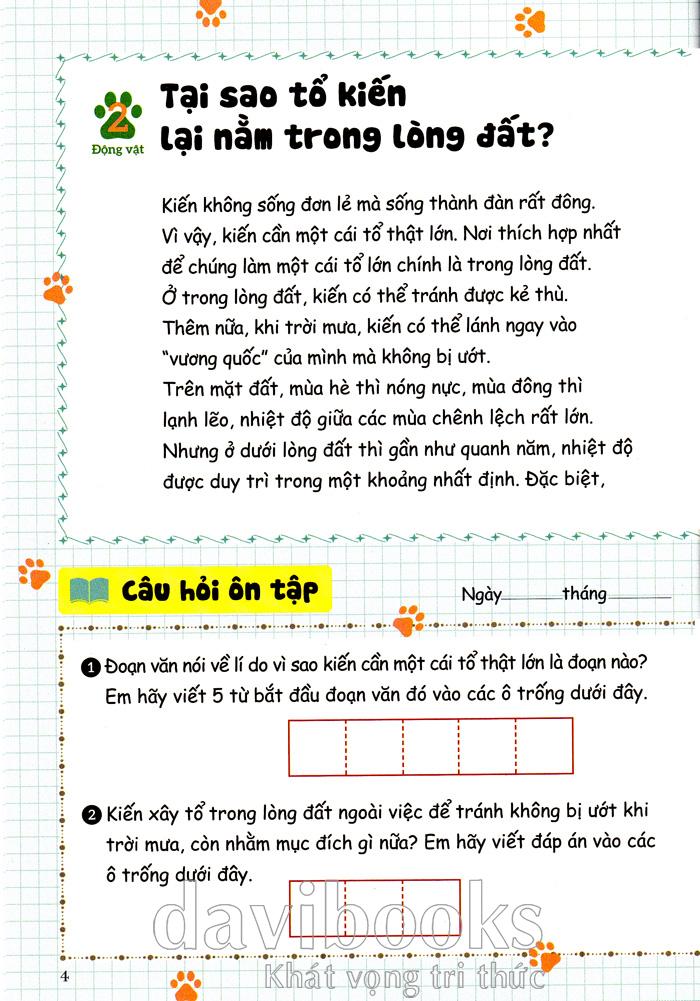 2
Động vật
Tại sao tổ kiến
lại nằm trong lòng đất?
Kiến không sống đơn lẻ mà sống thành đàn rất đông.
Vì vậy, kiến cần một cái tổ thật lớn. Nơi thích hợp nhất
để chúng làm một cái tổ lớn chính là trong lòng đất.
Ở trong lòng đất, kiến có thể tránh được kẻ thù.
Thêm nữa, khi trời mưa, kiến có thể lánh ngay vào
“vương quốc” của mình mà không bị ướt.
Trên mặt đất, mùa hè thì nóng nực, mùa đông thì
lạnh lẽo, nhiệt độ giữa các mùa chênh lệch rất lớn.
Nhưng ở dưới lòng đất thì gần như quanh năm, nhiệt độ
được duy trì trong một khoảng nhất định. Đặc biệt,
Câu hỏi ôn tập
Ngày______tháng______
1 Đoạn văn nói về lí do vì sao kiến cần một cái tổ thật lớn là đoạn nào?
Em hãy viết 5 từ bắt đầu đoạn văn đó vào các ô trống dưới đây.
2 Kiến xây tổ trong lòng đất ngoài việc để tránh không bị ướt khi
trời mưa, còn nhằm mục đích gì nữa? Em hãy viết đáp án vào các
ô trống dưới đây.
davibooks
Khát vọng tri thức
4